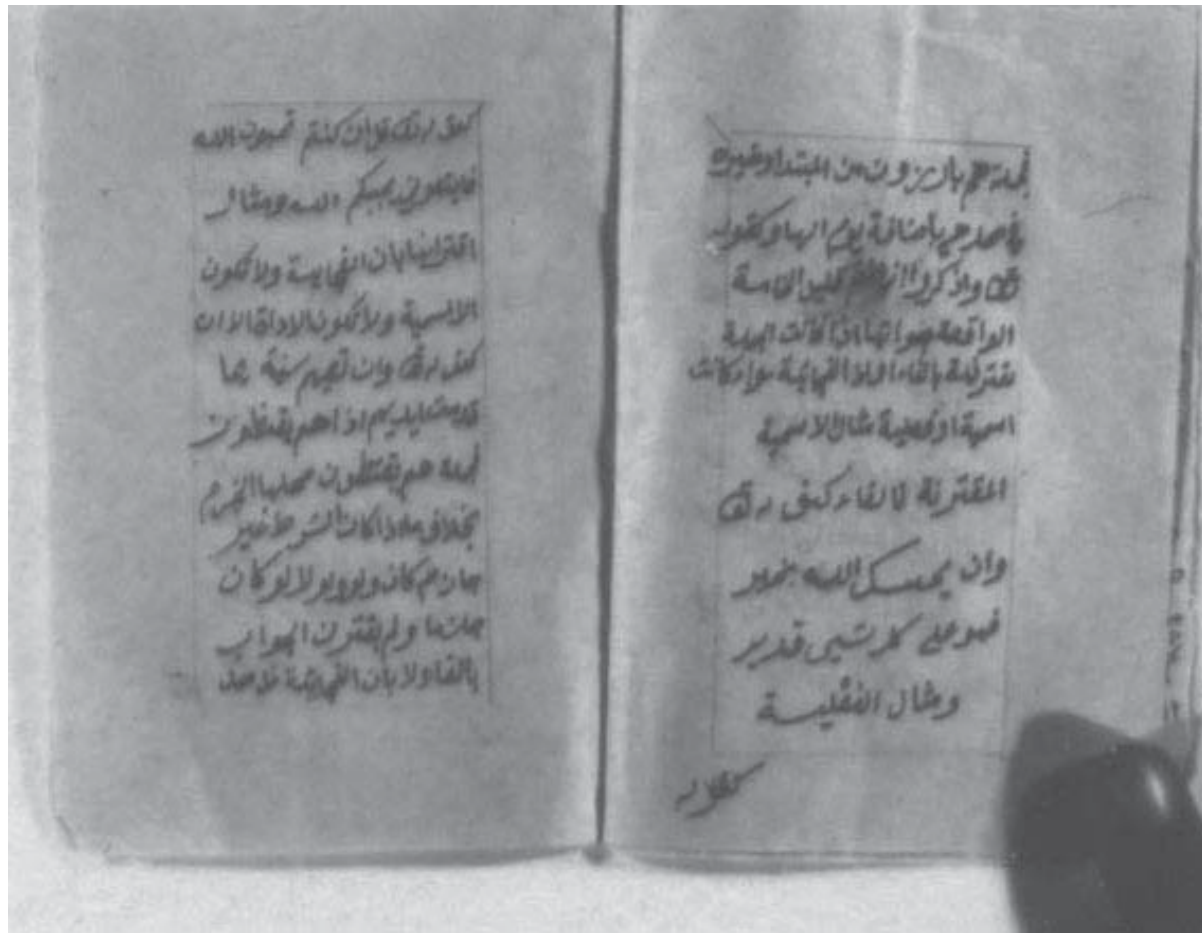 فجملة هم بارزون من المبتدا وخبره
باضافة يوم اليها وكقوله
تع واذكروا اذ انتم قليل الخامسة
الواقعة جوابها اذا كانت الجملة
مقترنة بالفاء او اذا الفجائية سواء كانت
اسمية او فعلية مثال الاسمية
المقترنة بالفاء كقوله تع
وان يمسك الله بخير
فهو على كل شيى قدير
ومثال الفعلية
كقوله
كقوله تع قل ان كنتم تحبون الله
فاتبعونى يحببكم الله ومثال
اقترانها باذا الفجايية ولا تكون
الا اسمية ولا تكون الاداة الا ان
كقوله تع وان تصبهم سيئة بما
قدمت ايديهم اذا هم يقنطون
فجملة هم يقنطون محلها الجزم
بخلاف ما اذا كانت الشرط غير
جازم كاذا ولو ولولا او كان
جازما ولم يقترن الجواب
بالفا ولا باذا الفجيئة فلا محل